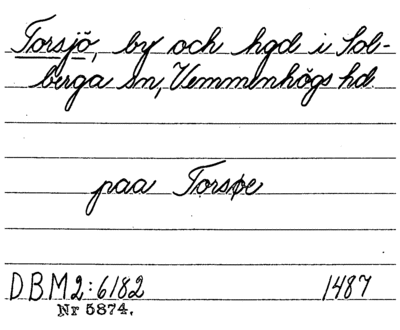 Torsjö, by och hgd i Sol-
berga sn, Vemmenhögs hd.
paa Torsøe
DBM2:6182 1487
Nr 5874.